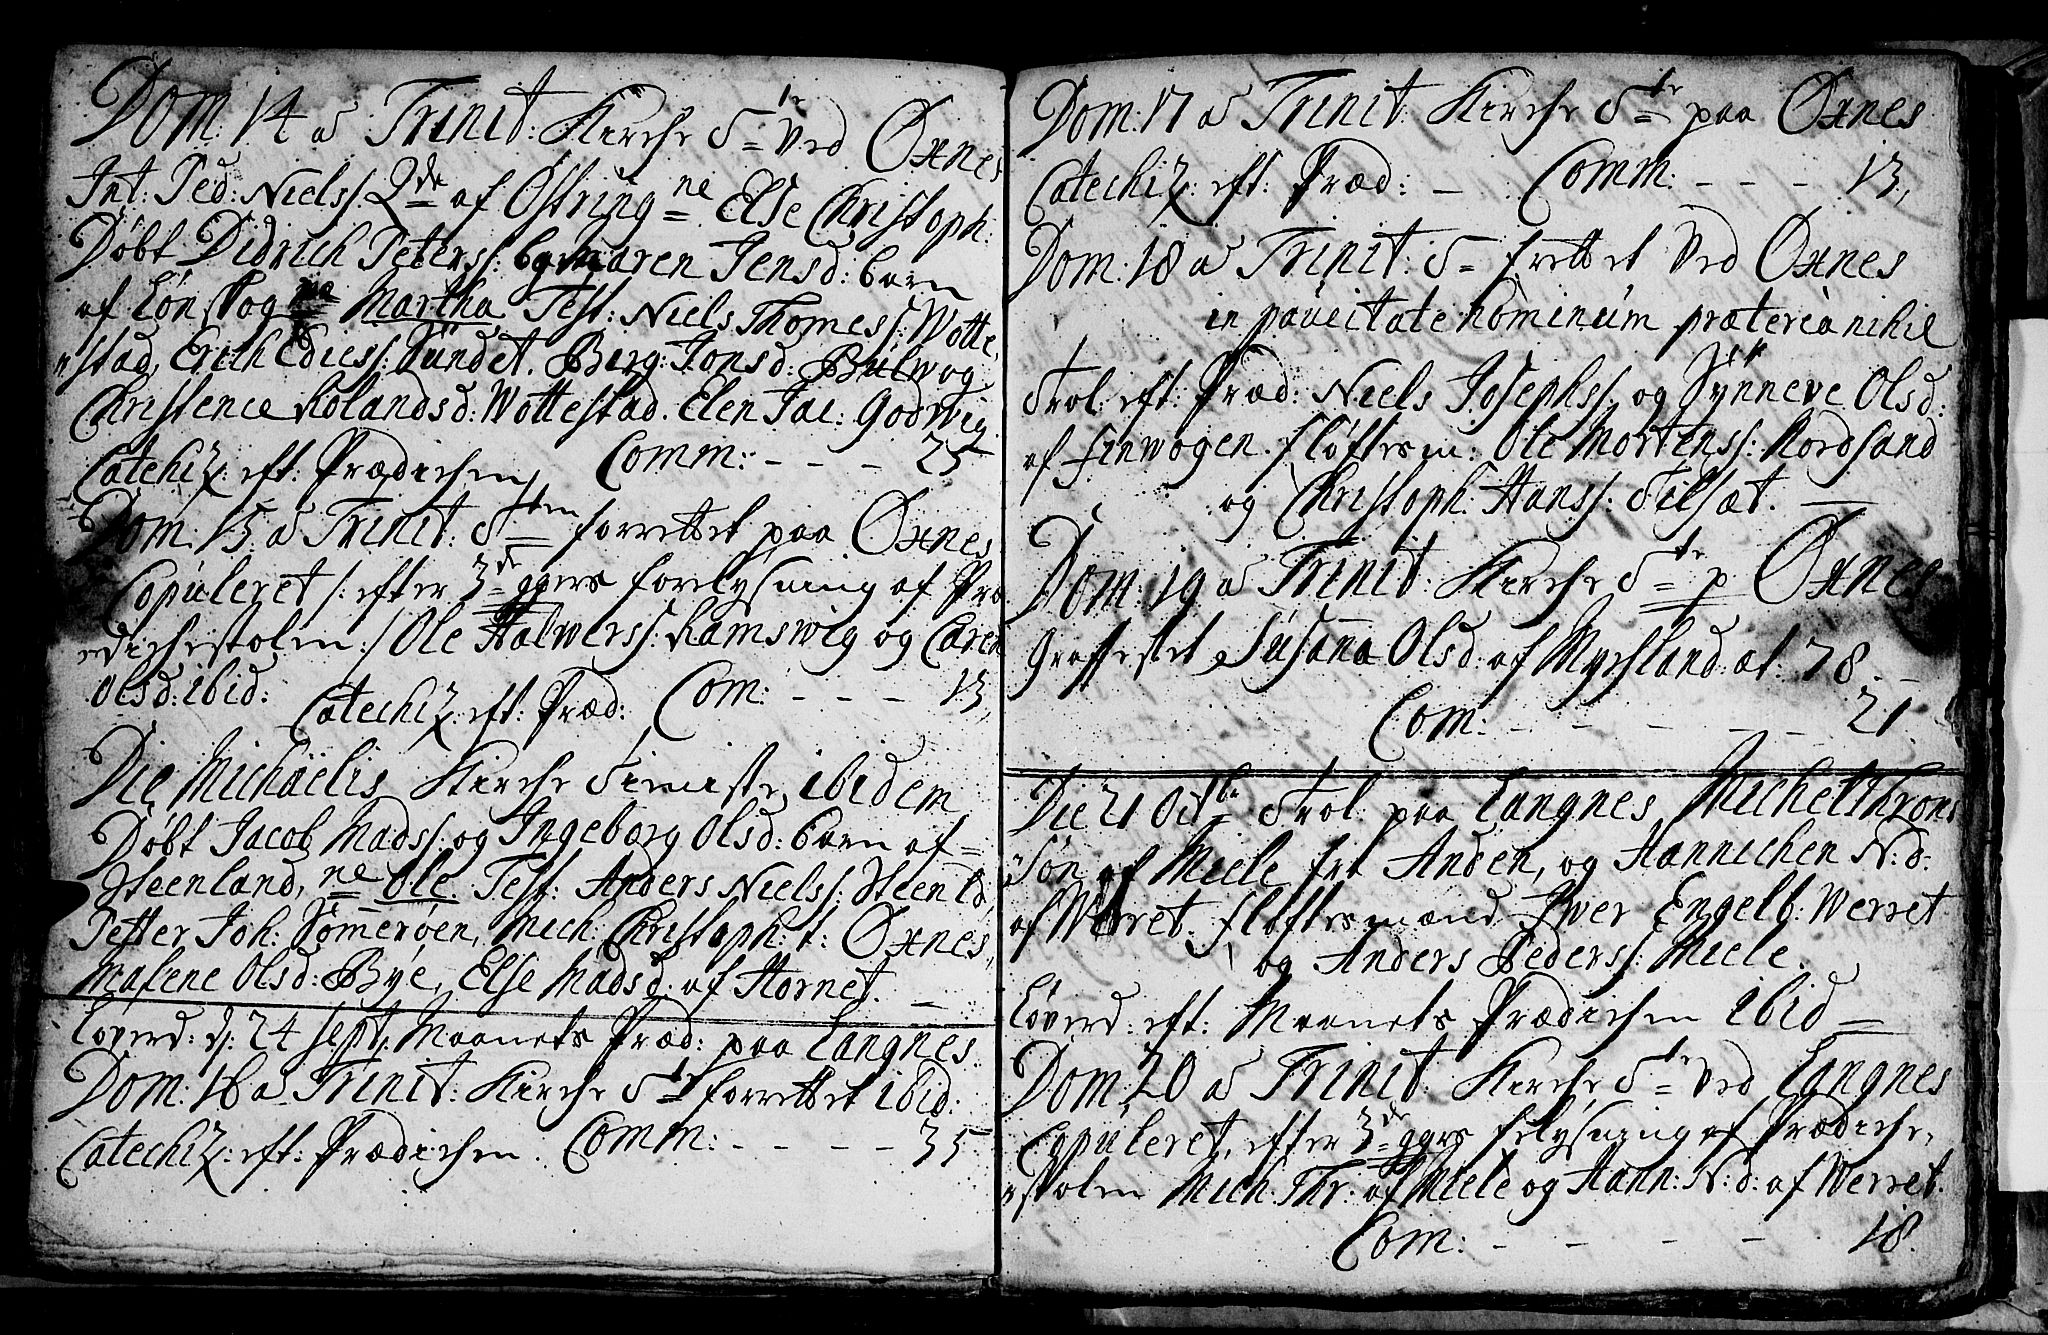 Dom: 14 a Trinit: Kirche Ste ved Øxnes
Int: Ped: Niels/: 2de af Østring ne Else Christoph:
Døbt Didrich Peters/: og Maren Jensd: barn
af Lønskog ne Martha Test: Niels Thomes/: Wotte,
stad, Erich Edies/: Sundet. Berg: Jonsd: Bulwog
Christence Rolandsd: Wottestad. Elen Jac: Godwig.
Catechiz: eft: Prædichen Comm: - - - 25
Dom: 15 a Trinit: Sten forrettet paa Øxnes
Copuleret /: efter 3de ggers forelysning af Præ
dichestolen :/ Ole Halwers/: Ramswig og Caren
Olsd: ibid: Catechiz: eft: Præd: Com: - - - 13,
Die Michaelis Kirche Tieniste ibidem
Døbt Jacob Mads/: og Ingeborg Olsd: barn af
Steenland, ne Ole. Test: Anders Niels/: Steenld,
Petter Joh: Sommerøen, Mich: Christoph: t: Øxnes,
Malene Olsd: Bye, Else Madsd: af Hornet. -
Løverd: d: 24 Sept: Maanets Præd: paa Langnes.
Dom: 16 a Trinit: Kirche Ste forrettet ibid.
Catechiz: eft: Prædichen. Comm: - - - - 35
Dom: 17 a Trinit: Kirche Ste paa Øxnes
Catechiz: eft: Præd: - Comm: - - - 13,
Dom: 18 a Trinit: S- frettet ved Øxnes
in paucitate hominum præterea nihil
Trol: eft: Præd: Niels Josephs/: og Synneve Olsd:
af Finwogen. fløttsm: Ole Mortens/: Nordsand
og Christoph: Hans/: Tilsæt. -
Dom: 19 a Trinit: Kirche Ste p Øxnes
Graffestet Susanna Olsd: af Myrland: æt: 78. -
Com: - - - - - 21.
Die 21 Octbr Trol: paa Langnes Michel Throns
Søn af Miele fra Anden, og Hannichen N:d:
af Werret fløttsmænd Iwer Engelb: Werret
og Anders Peders/: Miele.
Løverd: eft: Maanets Prædichen ibid -
Dom: 20 a Trinit: Kirche Ste ved Langnes
Copuleret, efter 3de ggrs felysning af Prædiche,
stolen Mich: Thr: af Miele og Hann: N:d: af Werret.
Com: - - - - 18.